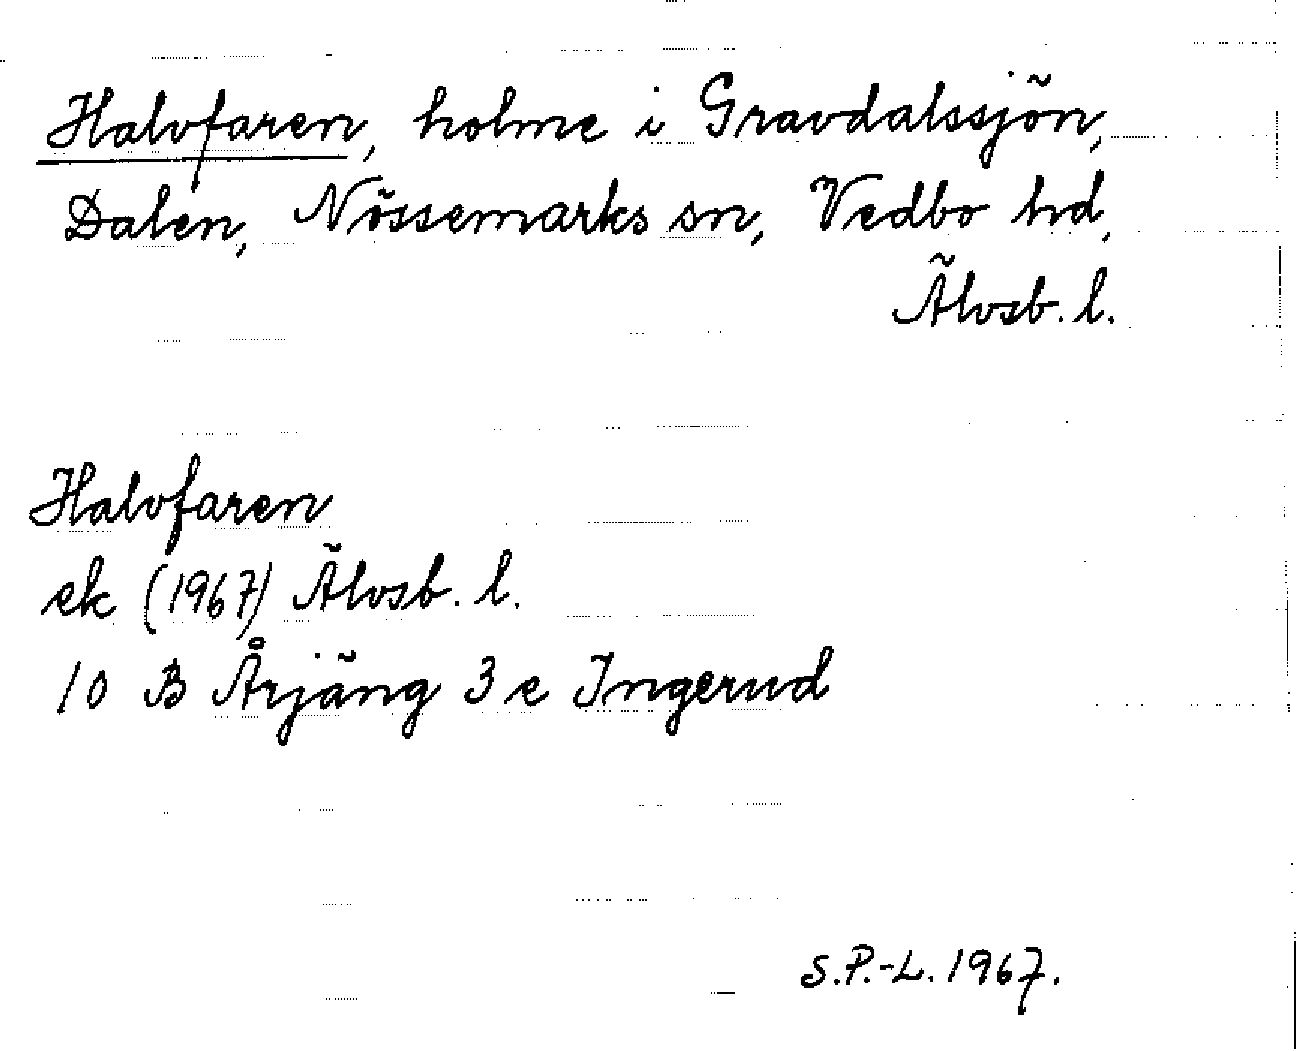 Halvfaren, holme i Gravdalssjön,
Dalen, Nössemarks sn, Vedbo hd,
Älvsb. l.
Halvfaren
ek (1967) Älvsb. l.
10 B Årjäng 3 e Ingerud
S.P.-L. 1967.